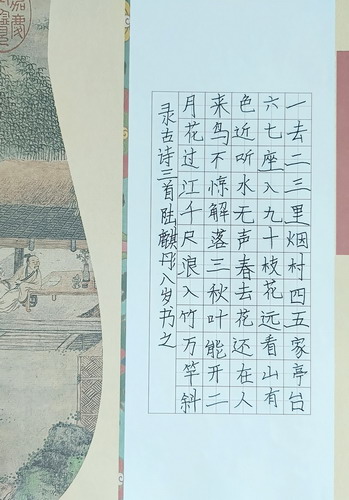 一去二三里烟村四五家亭台
六七座八九十枝花远看山有
色近听水无声春去花还在人
来鸟不惊解落三秋叶能开二
月花过江千尺浪入竹万竿斜
录古诗三首陆麒丹八岁书之